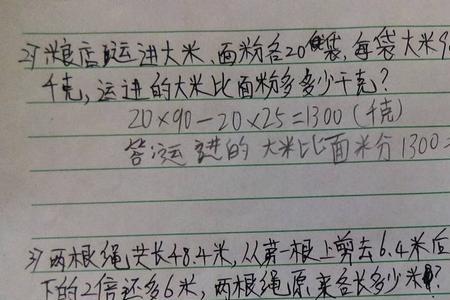 2) 粮店运进大米,面粉各20袋,每袋大米9
千克,运进的大米比面粉多多少千克?
20×90-20×25=1300(千克)
答:运进的大米比面米分1300
3) 两根绳共长48.4米,从第一根上剪去6.4米后
下的2倍还多6米,两根绳原来各长多少米?